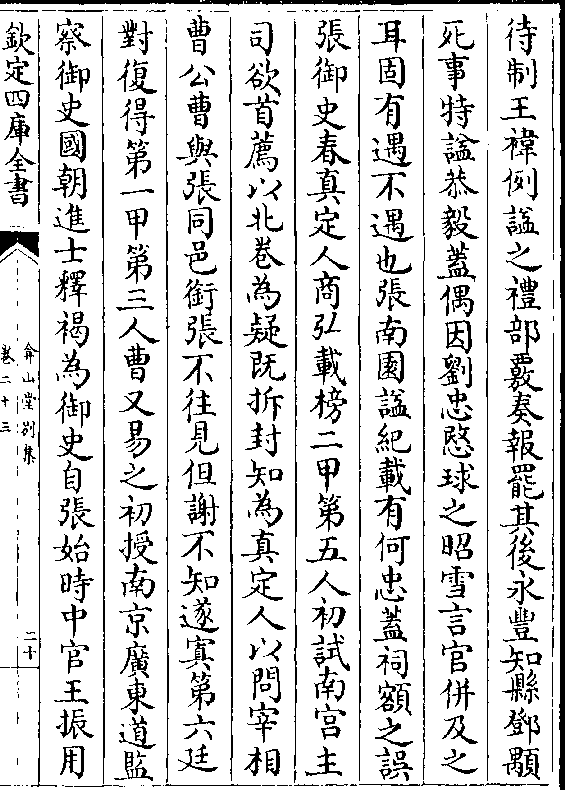 待制王禕例謚之禮部覈奏報罷其後永豐知縣鄧顒
死事特謚恭毅蓋偶因劉忠愍球之昭雪言官併及之
耳固有遇不遇也張南園謚紀載有何忠蓋祠額之誤
張御史春真定人商弘載榜二甲第五人初試南宫主
司欲首薦以北卷為疑既拆封知為真定人以問宰相
曹公曹與張同邑銜張不往見但謝不知遂寘第六廷
對復得第一甲第三人曹又易之初授南京廣東道監
察御史國朝進士釋褐為御史自張始時中官王振用
欽定四庫全書
弇山堂别集
卷二十三
二十